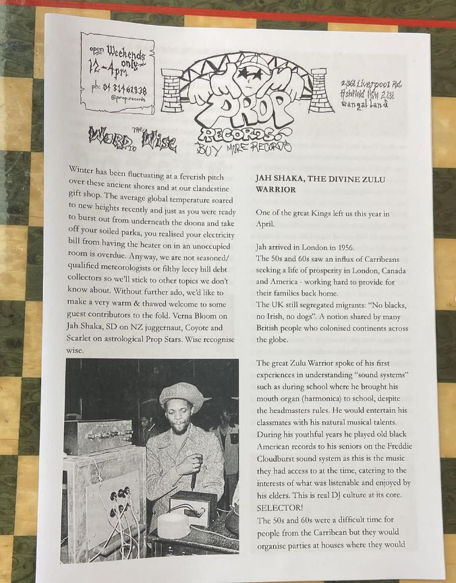 open Weekends
only
12-4pm
@prop.records
PROP
RECORDS
BUY MORE RECORDS
Liverpool Rd.
Ashfield NSW 2131
Wangal Land
WORD TO THE Wise
Winter has been fluctuating at a feverish pitch
over these ancient shores and at our clandestine
gift shop. The average global temperature soared
to new heights recently and just as you were ready
to burst out from underneath the doona and take
off your soiled parks, you realised your electricity
bill from having the heater on in an unoccupied
room is overdue. Anyway, we are not seasoned/
qualified meteorologists or filthy leccy bill debt
collectors so we'll stick to other topics we don't
know about. Without further ado, we'd like to
make a very warm & thawed welcome to some
guest contributors to the fold. Verna Bloom on
Jah Shaka, SD on NZ juggernaut, Coyote and
Scarlet on astrological Prop Stars. Wise recognise
wise.
JAH SHAKA, THE DIVINE ZULU
WARRIOR
One of the great Kings left us this year in
April.
Jah arrived in London in 1956.
The 50s and 60s saw an influx of Carribeans
seeking a life of prosperity in London, Canada
and America - working hard to provide for
their families back home.
The UK still segregated migrants: "No blacks,
no Irish, no dogs". A notion shared by many
British people who colonised continents across
the globe.
The great Zulu Warrior spoke of his first
experiences in understanding "sound systems"
such as during school where he brought his
mouth organ (harmonica) to school, despite
the headmasters rules. He would entertain his
classmates with his natural musical talents.
During his youthful years he played old black
American records to his seniors on the Freddie
Cloudburst sound system as this is the music
they had access to at the time, catering to the
interests of what was listenable and enjoyed by
his elders. This is real DJ culture at its core.
SELECTOR!
The 50s and 60s were a difficult time for
people from the Carribean but they would
organise parties at houses where they would